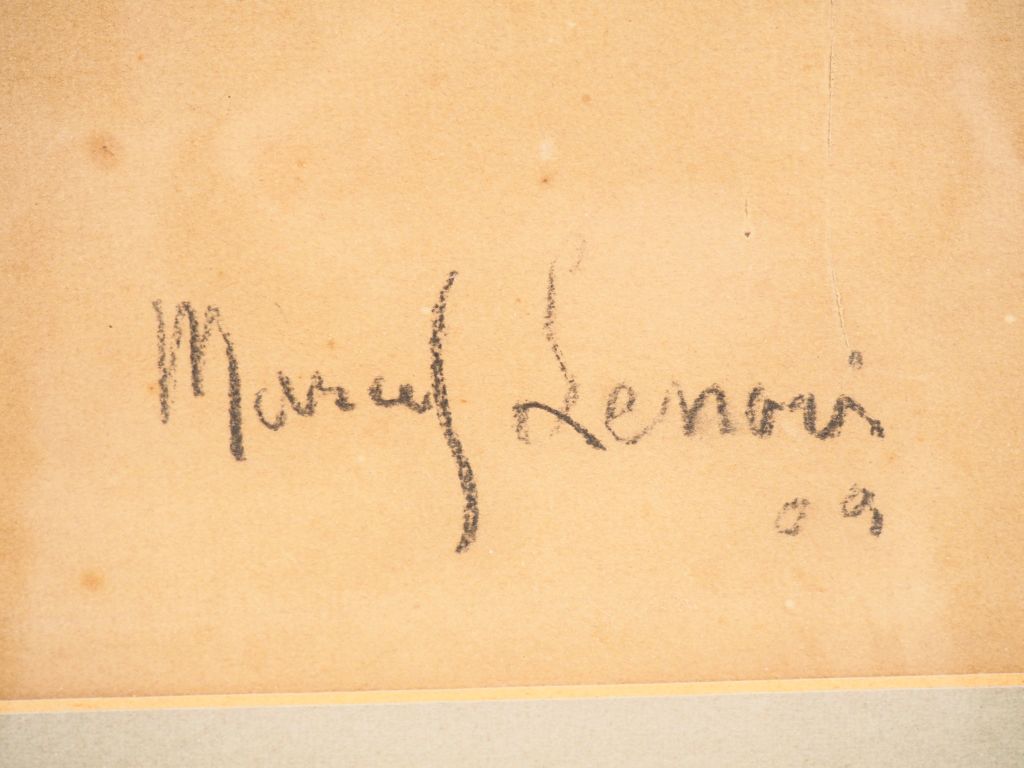 Marcel Lenoir
09